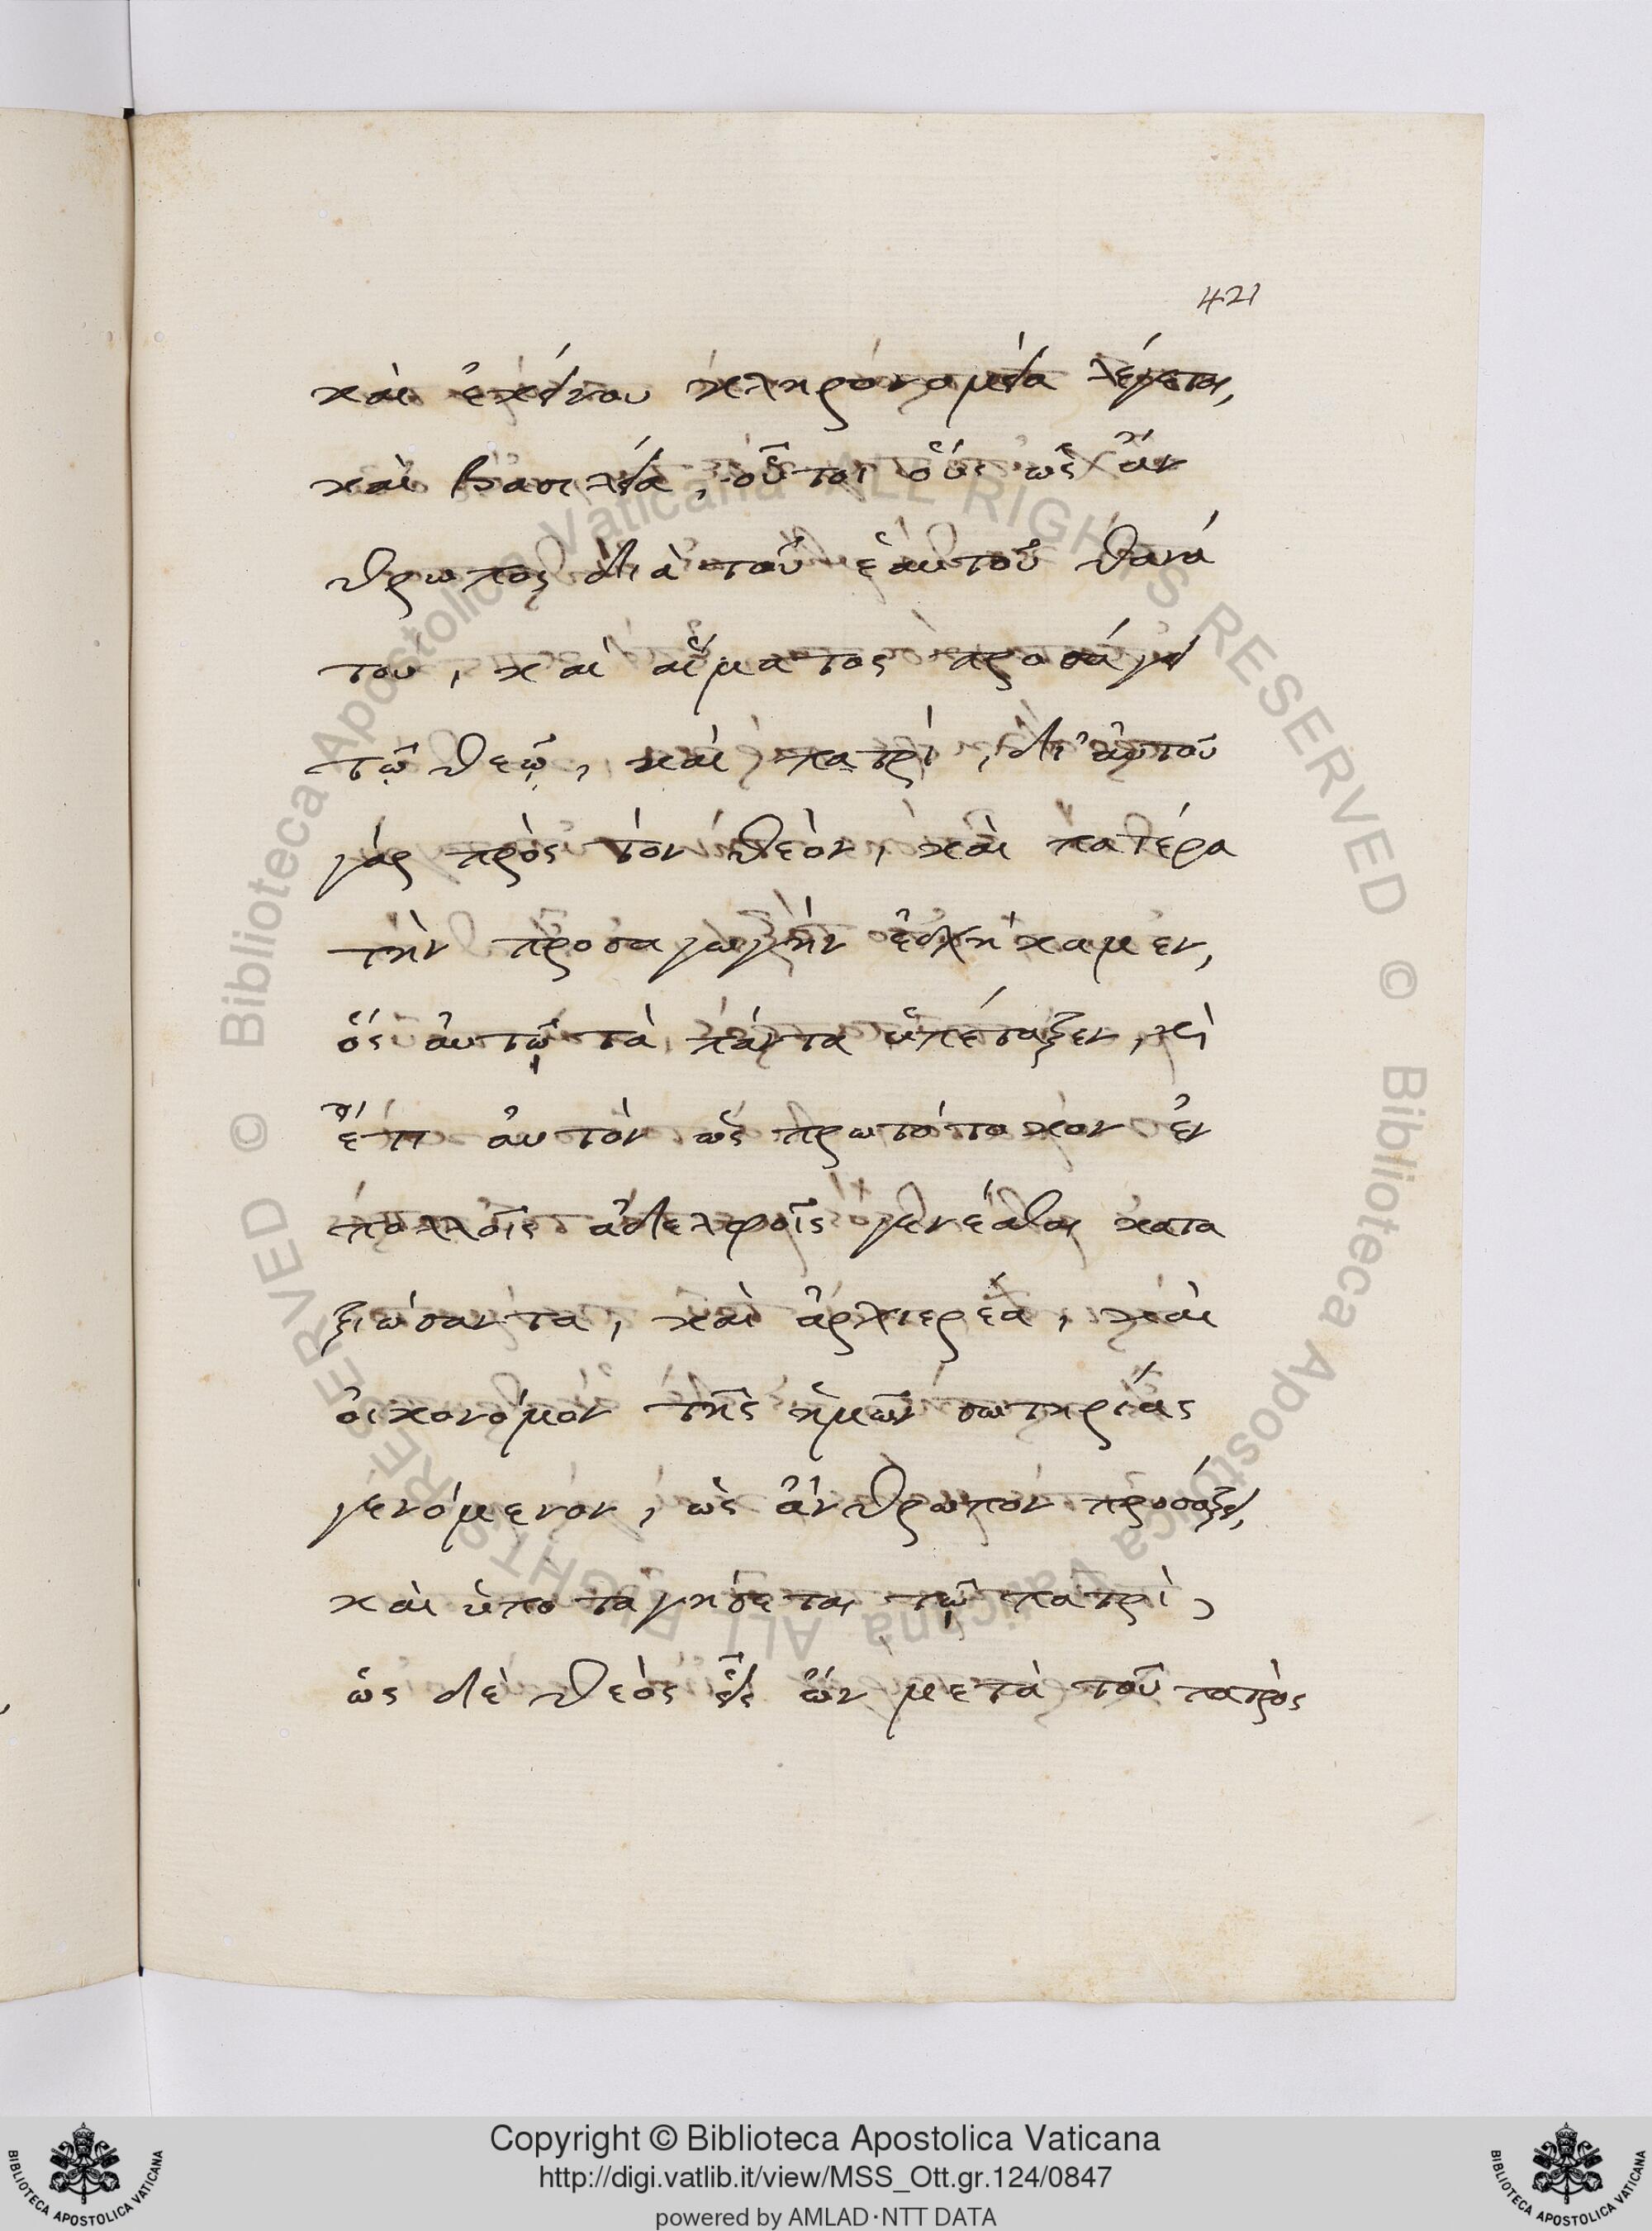 421
καὶ ἐκείνου κληρονομεία λέγεται,
καὶ βασιλεία, οὗτοι οὓς ὡς ἄν
θρωπος διὰ τοῦ ἑαυτοῦ θανά
του, καὶ αἵματος προσάγει
τῷ θεῷ, καὶ πατρί, δι' αὐτοῦ
γὰρ πρὸς τὸν θεὸν, καὶ πατέρα
τὴν προσαγωγὴν ἐσχήκαμεν,
ὅς αὐτῷ τὰ πάντα ὑπέταξεν, καὶ
ἔτι αὐτὸν ὡς πρωτότοκον ἐν
πολλοῖς ἀδελφοῖς γενέσθαι κατα
ξιώσαντα, καὶ ἀρχιερέα, καὶ
οἰκονόμον τῆς ἡμῶν σωτηρίας
γενόμενον, ὡς ἄνθρωπον προσάξει,
καὶ ὑποταγήσεται τῷ πατρὶ,
ὡς δὲ θεὸς εἷς ὢν μετὰ τοῦ πατρὸς
Copyright © Biblioteca Apostolica Vaticana
http://digi.vatlib.it/view/MSS_Ott.gr.124/0847
powered by AMLAD·NTT DATA
BIBLIOTECA APOSTOLICA VATICANA
BIBLIOTECA APOSTOLICA VATICANA
© Biblioteca Apostolica Vaticana ALL RIGHTS RESERVED
© Biblioteca Apostolica Vaticana ALL RIGHTS RESERVED